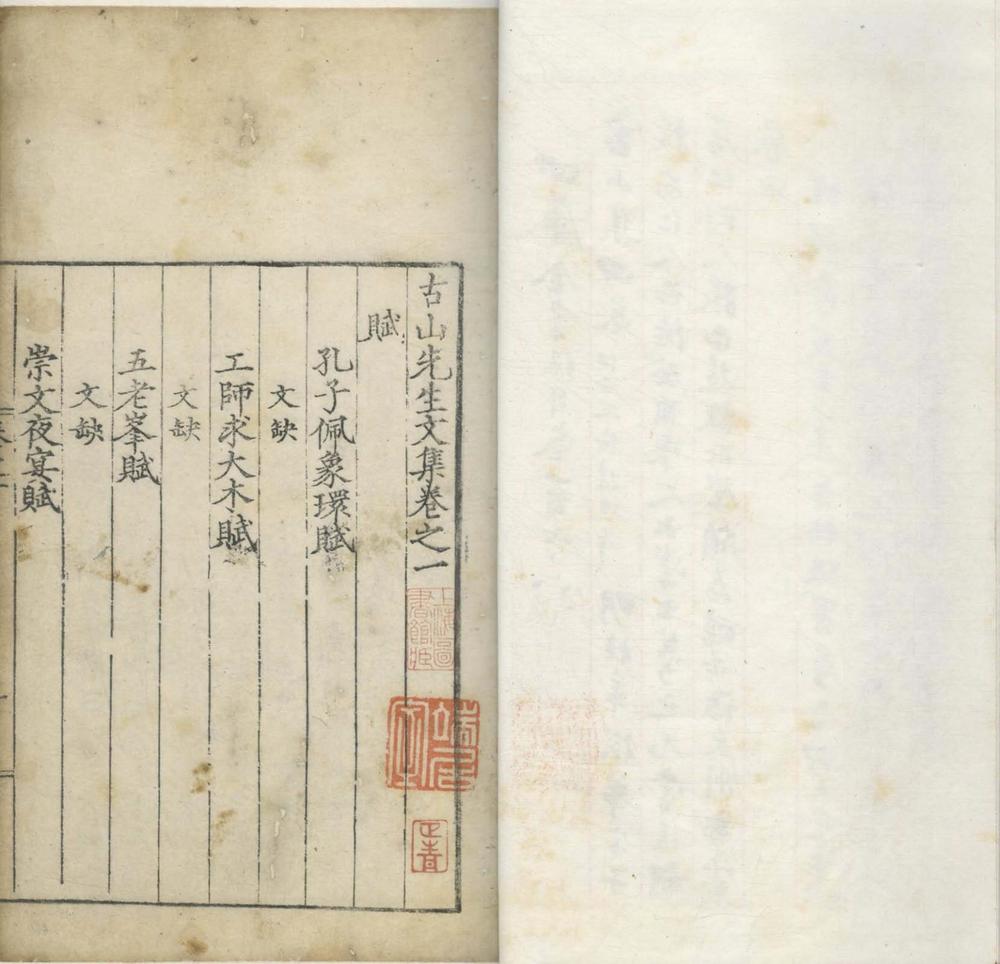 古山先生文集卷之一
賦
孔子佩象環賦
文缺
工師求大木賦
文缺
五老峯賦
文缺
崇文夜宴賦
上海圖
書館藏
端居
室